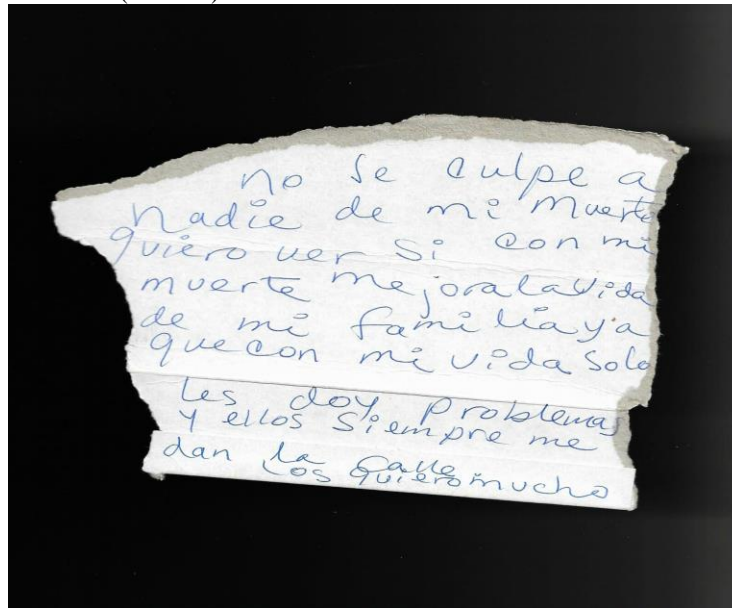 no se culpe a
nadie de mi muerte
quiero ver si con mi
muerte mejora la vida
de mi familia ya
que con mi vida solo
les doy problemas
y ellos siempre me
dan la calle
los quiero mucho